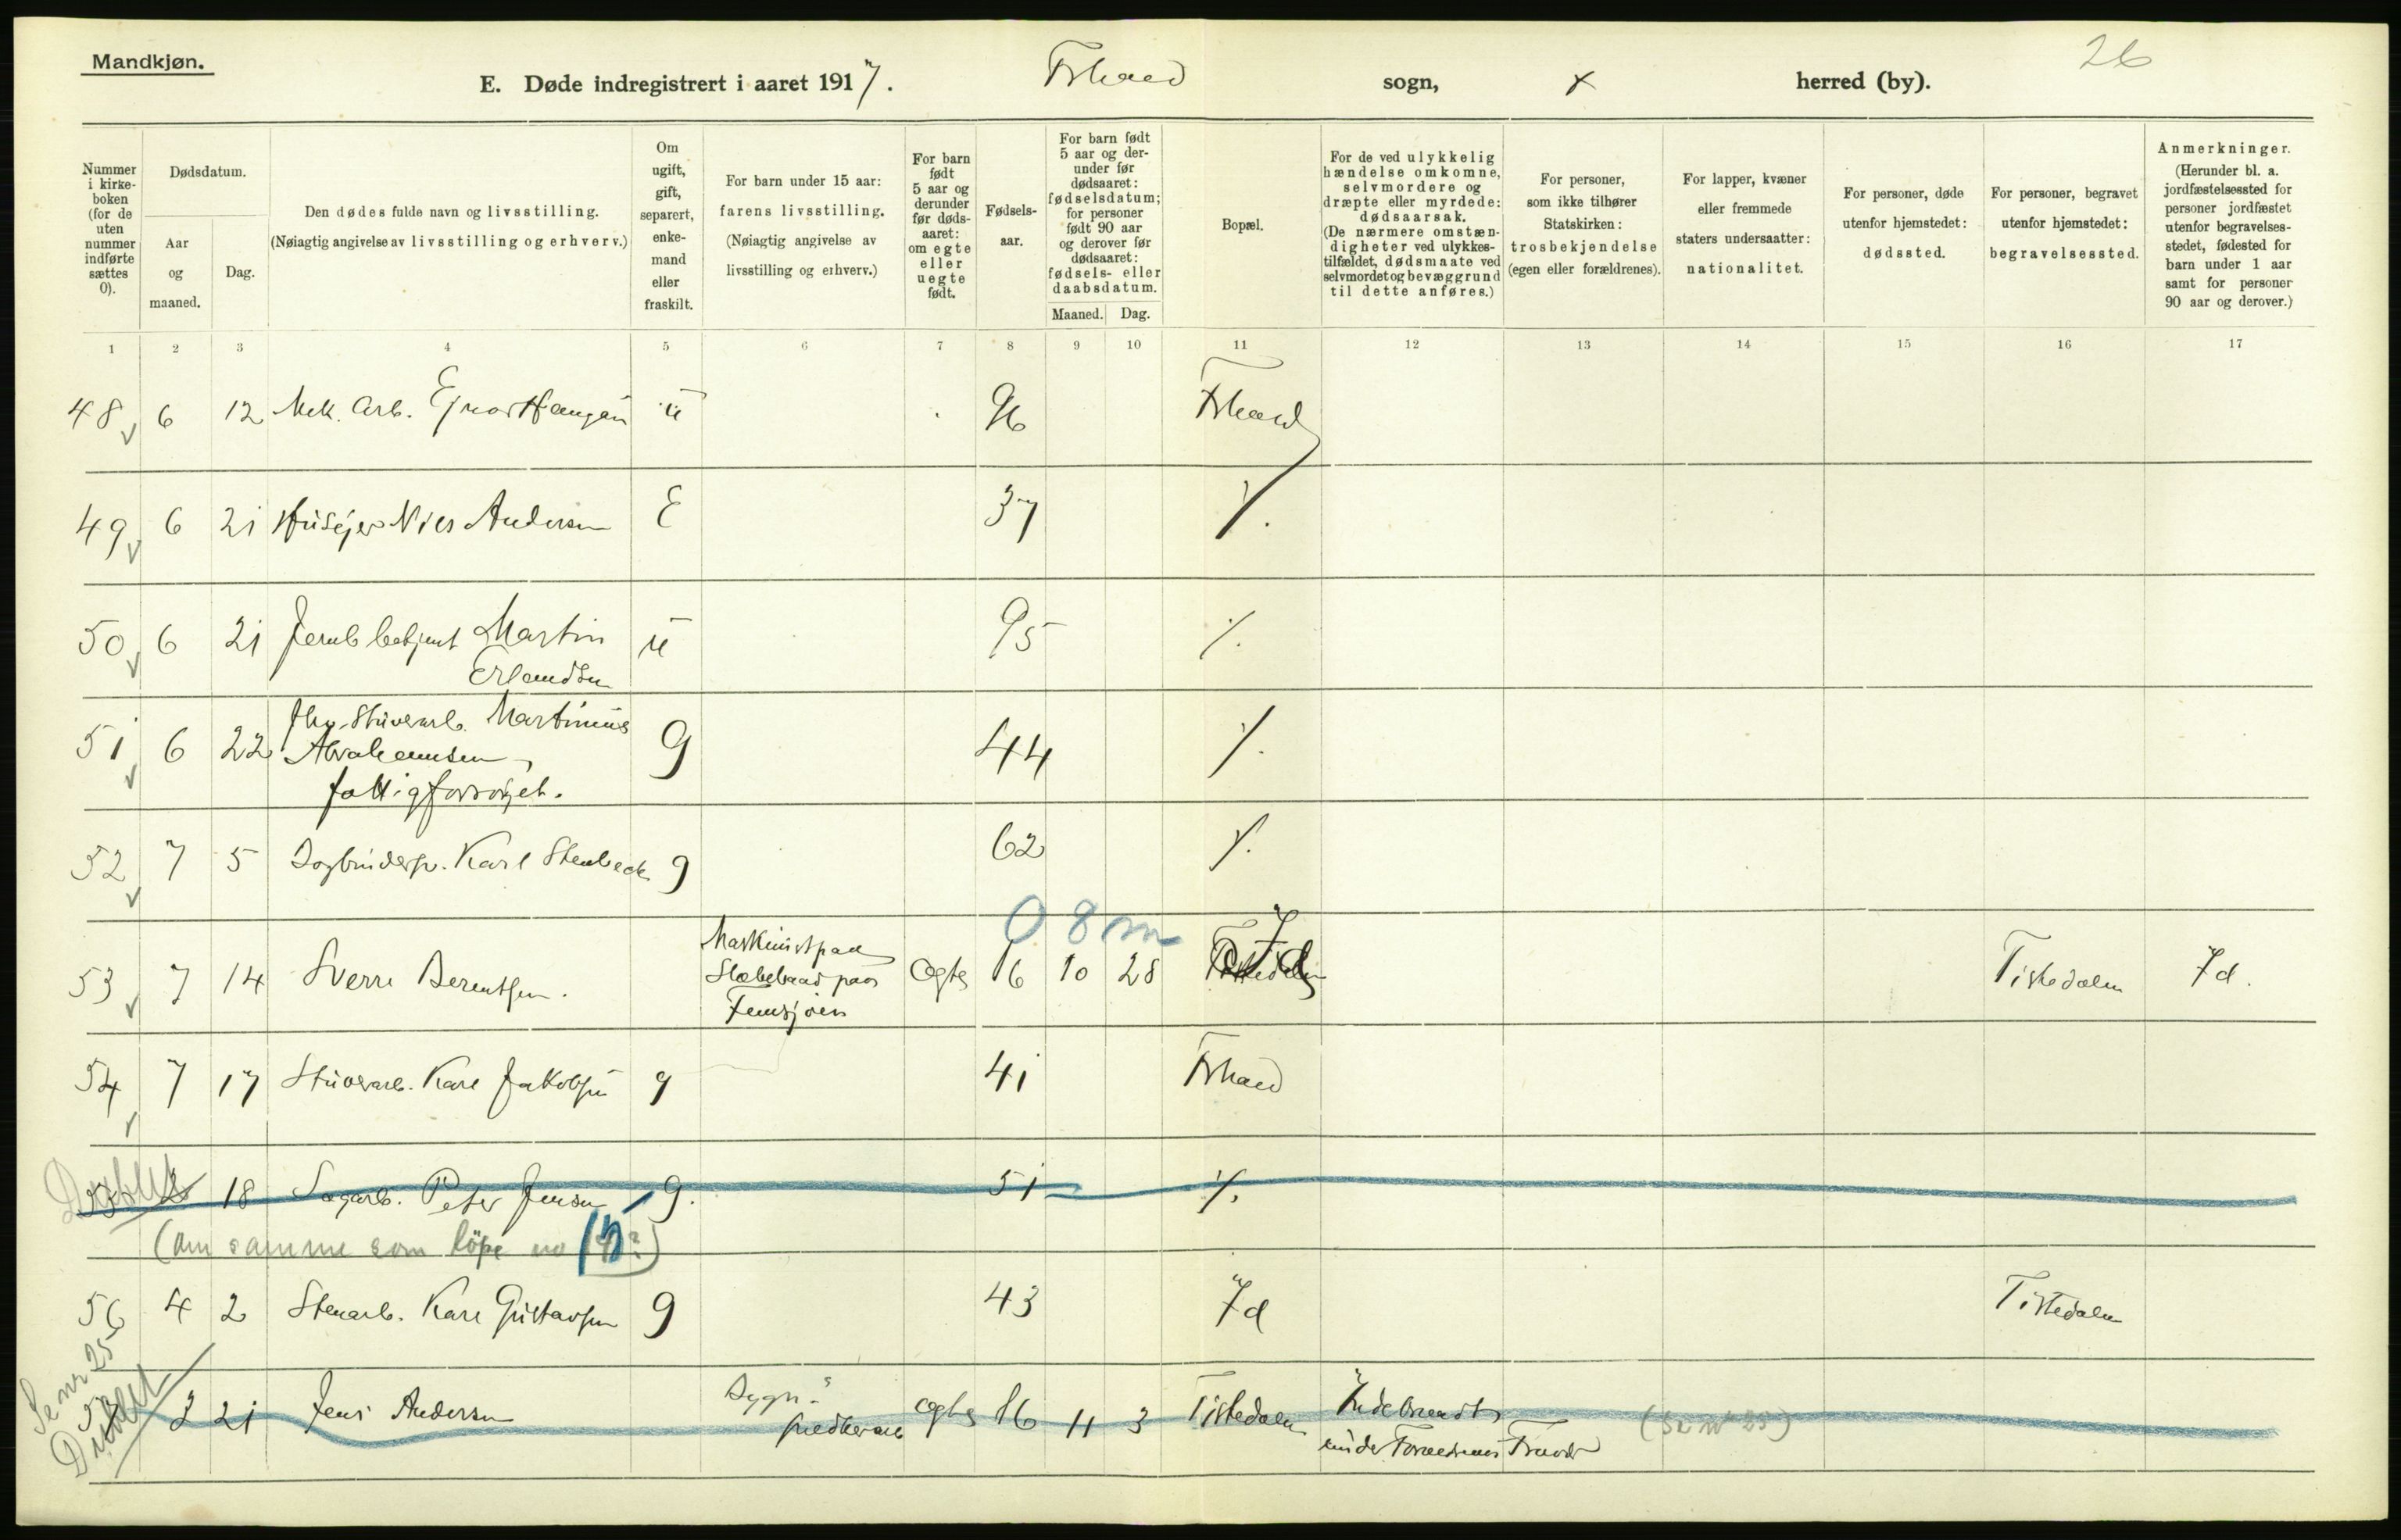 Mandkjøn.
26
E. Døde indregistrert i aaret 1917. Frhald sogn, herred (by).
Nummer i kirkeboken (for de uten nummer indførte sættes 0).
Dødsdatum.
Aar og maaned.
Dag.
Den dødes fulde navn og livsstilling.
(Nøiagtig angivelse av livsstilling og erhverv.)
Om ugift, gift, separert, enkemand eller fraskilt.
For barn under 15 aar: farens livsstilling.
(Nøiagtig angivelse av livsstilling og erhverv.)
For barn født 5 aar og derunder før dødsaaret: om egte eller uegte født.
Fødselsaar.
For barn født 5 aar og derunder før dødsaaret: fødselsdatum; for personer født 90 aar og derover før dødsaaret: fødsels- eller daabsdatum.
Maaned. Dag.
Bopæl.
For de ved ulykkelig hændelse omkomne, selvmordere og dræpte eller myrdede: dødsaarsak.
(De nærmere omstændigheter ved ulykkestilfældet, dødsmaate ved selvmordet og bevæggrund til dette anføres.)
For personer, som ikke tilhører Statskirken: trosbekjendelse (egen eller forældrenes).
For lapper, kvæner eller fremmede staters undersaatter: nationalitet.
For personer, døde utenfor hjemstedet: dødssted.
For personer, begravet utenfor hjemstedet: begravelsessted.
Anmerkninger.
(Herunder bl. a. jordfæstelsessted for personer jordfæstet utenfor begravelsesstedet, fødested for barn under 1 aar samt for personer 90 aar og derover.)
1 2 3 4 5 6 7 8 9 10 11 12 13 14 15 16 17
48 6 12 Mek. Arb. Ejnar Haugen u 96 Frhald
49 6 21 Husejer Nils Andersen E 37 %.
50 6 21 Jernb betjent Martin u 95 %.
Erlandsen
51 6 22 Fhv. Stuvearb. Martinus G 44 %.
Abrahamsen,
fattigforsørget.
52 7 5 Karl Stenbeck g 62 %.
0 8 m
53 7 14 Sverre Berentsen. Maskinist paa Slæbebaad paa Femsjøen Egte 16 10 28 Tistedalen Id.
54 7 17 Stuvearb. Karl Jakobsen g 41 Frhald
Dublet
55 2 18 Sagarb. Peter Jensen g. 51 %.
(Om samme som löpe no 15?)
56 4 2 Stenarb. Karl Gustavsen g 43 Id Tistedalen
Se nr 25
Dublet
57 2 21 Jens Andersen Egte 16 11 3 Tistedalen Indebrændt (Se nr 25)
under Forældrenes Fravær